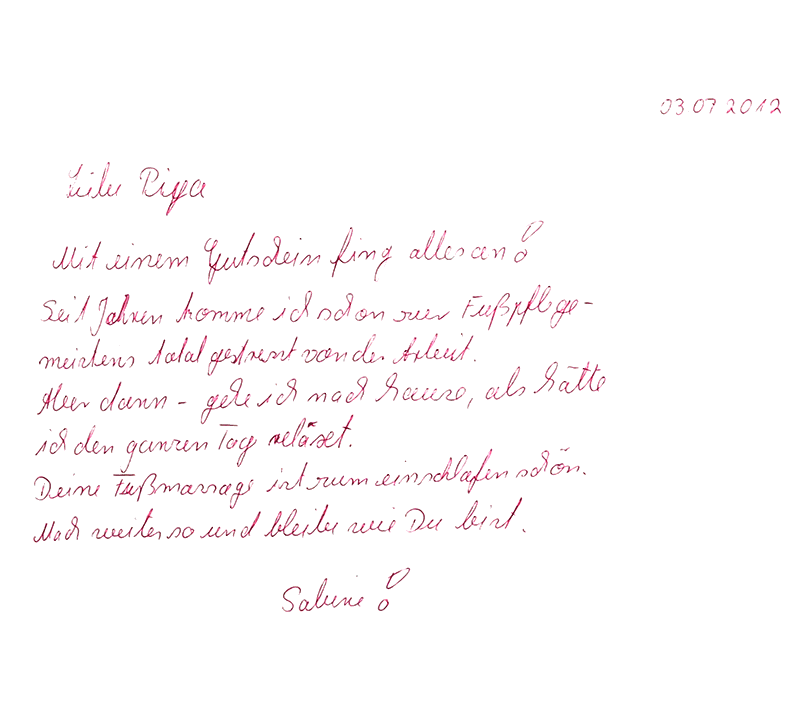 03 07 2012
Liebe Pipa
Mit einem Gutschein fing alles an!
Seit Jahren komme ich schon zur Fußpflege -
meistens total gestresst von der Arbeit.
Aber dann - gehe ich nach hause, als hätte
ich den ganzen Tag relaxt.
Deine Fußmassage ist zum einschlafen schön.
Mach weiter so und bleibe wie Du bist.
Sabine!